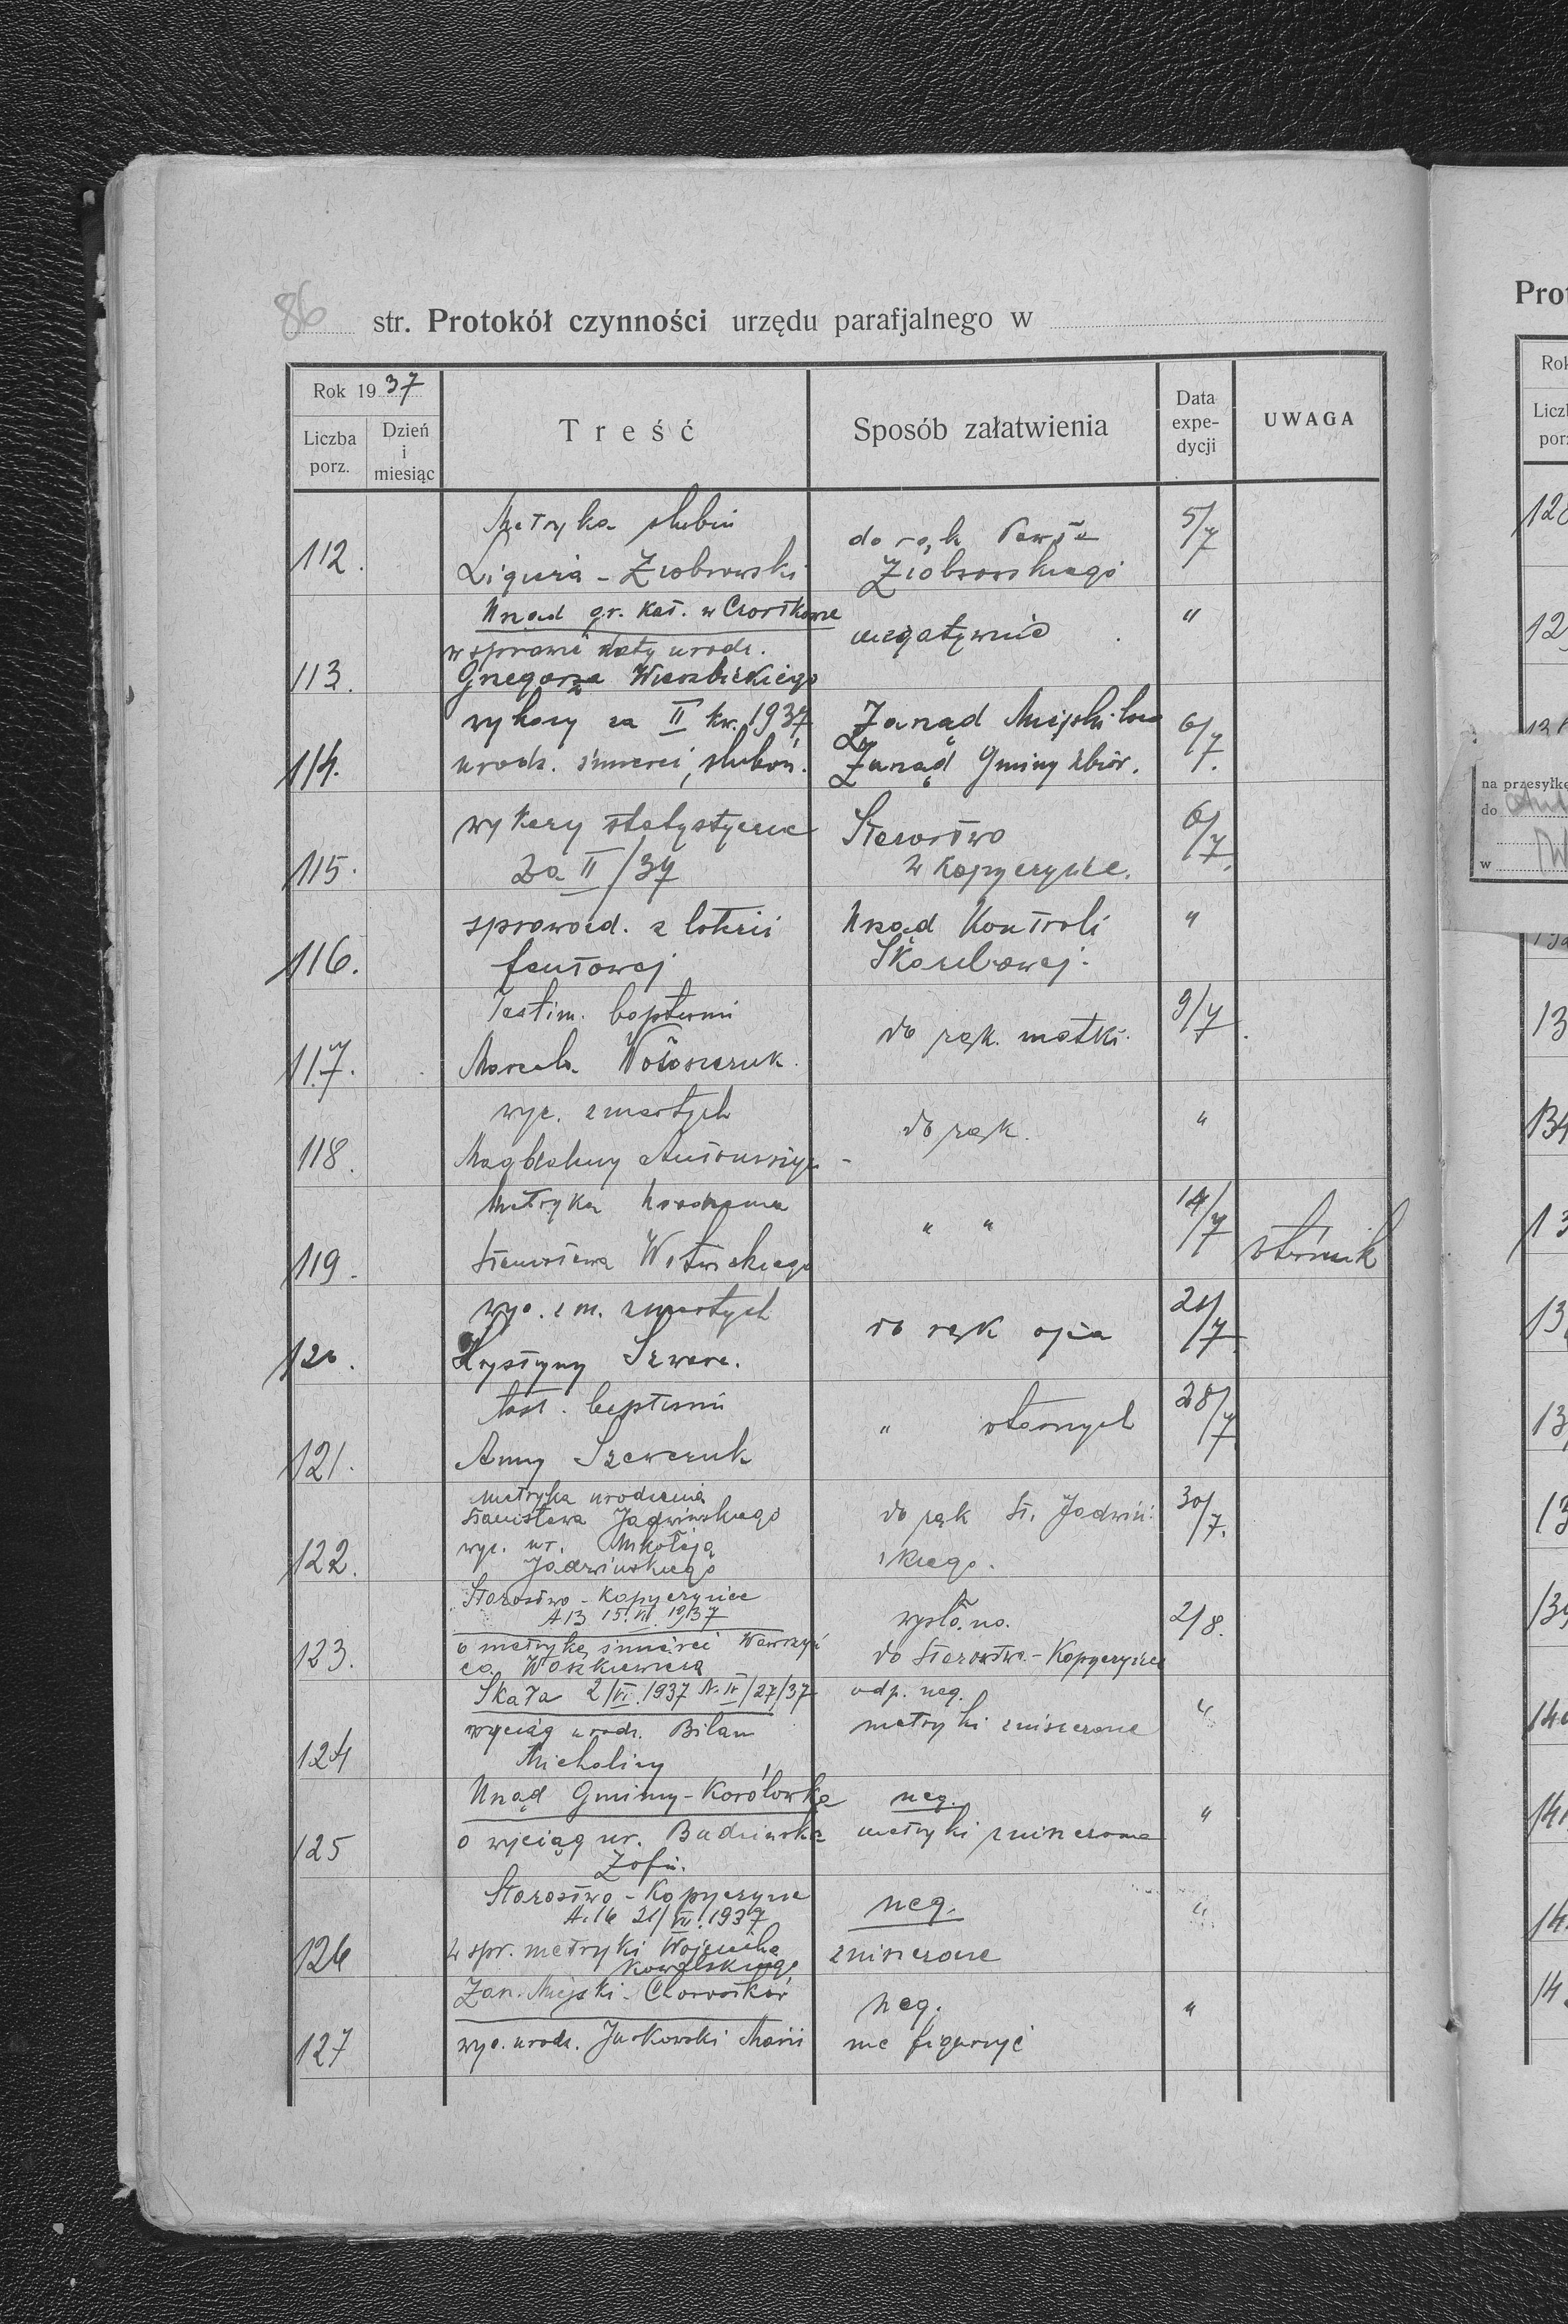 86 str. Protokół czynności urzędu parafjalnego w
Rok 1937
Liczba porz.
Dzień i miesiąc
Treść
Sposób załatwienia
Data expe-dycji
UWAGA
112.
Metryka ślubu
Ligieza - Ziobrowski
do rąk
Ziobrowskiego
5/7
113.
Urząd gr. kat. w Czortkowie
w sprawie daty urodz.
Grzegorza Wierzbickiego
negatywnie
"
114.
wykazy za II kw. 1937
urodz. śmierci, ślubów.
Zarząd Miejski
Zarząd Gminy zbior.
6/7.
115.
wykazy statystyczne
za II/37
Starostwo
w Kopyczyńce.
6/7.
116.
sprawozd. z loterii
fantowej
Urząd Kontroli
Skarbowej.
"
117.
Testim. baptismi
Wołoszczuk.
do rąk. matki.
9/7
118.
wyc. zmarłych
Magdaleny
do rąk.
"
119.
Metryka urodzenia
Stanisława Witwickiego
" "
14/7
120.
wyc. z m. zmarłych
Krystyny Szwarc.
do rąk ojca
21/7
121.
test. baptismi
Anny Szewczuk
" własnych
28/7
122.
metryka urodzenia
Stanisława Jadwińskiego
wyc. ur. Mikołaja
Jadwińskiego
do rąk St. Jadwiń-
skiego.
30/7.
123.
Starostwo - Kopyczyńce
A 13 15.VII.1937
o metrykę śmierci Wawrzyń
ca Woszkiewicza
wysłano.
do Starostwa - Kopyczyńce
2/8.
124
Skała 2/VI.1937 N. IV/27/37
wyciąg urodz. Bilan
Michaliny
odp. neg.
metryki zniszczone
"
125
Urząd Gminy - Korolówka
o wyciąg ur. Budzińska
Zofii.
neg.
metryki zniszczone
"
126
Starostwo - Kopyczyńce
A. 16 21/VII.1937
w spr. metryki Wojciecha
Kowalskiego
neg.
zniszczone
"
127
Zarz. Miejski - Chorostków
wyc. urodz. Jurkowski Marii
neg.
nie figuruje
"
Prot
Rok
Liczb
porz
na przesyłkę
do
w